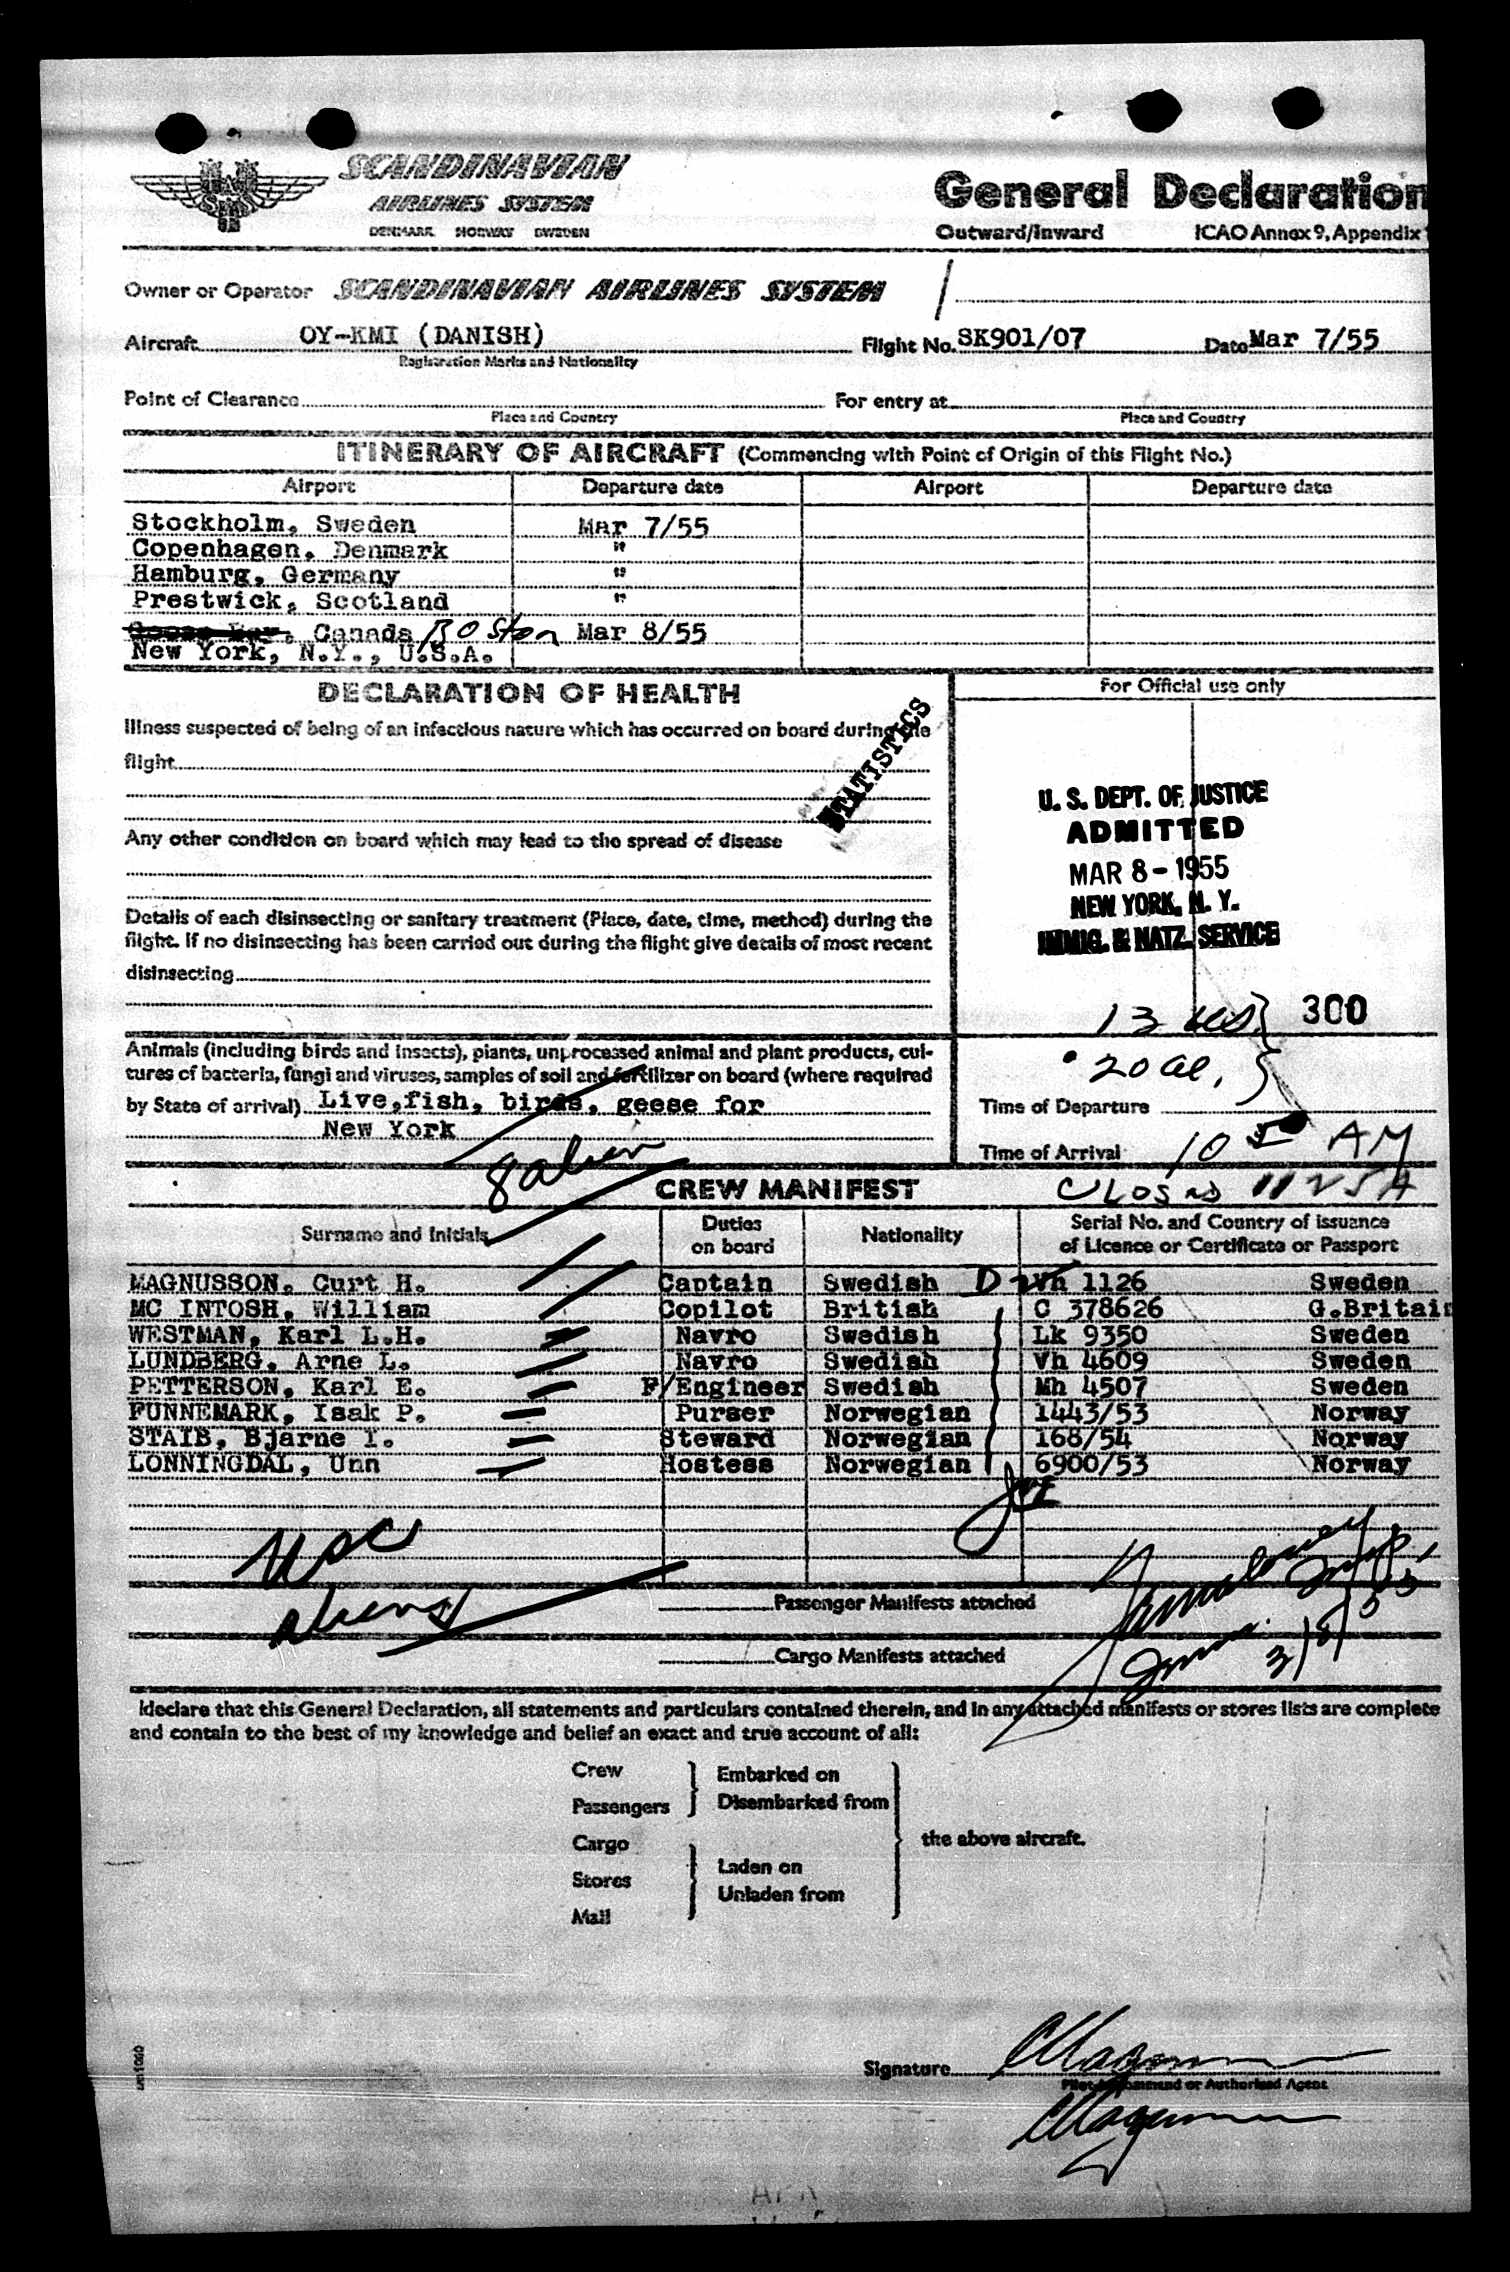 SCANDINAVIAN
AIRLINES SYSTEM
DENMARK NORWAY SWEDEN
General Declaration
Outward/Inward ICAO Annex 9, Appendix
Owner or Operator SCANDINAVIAN AIRLINES SYSTEM
Aircraft OY-KMI (DANISH) Flight No. SK901/07 Date Mar 7/55
Registration Marks and Nationality
Point of Clearance For entry at
Place and Country Place and Country
ITINERARY OF AIRCRAFT (Commencing with Point of Origin of this Flight No.)
Airport Departure date Airport Departure date
Stockholm, Sweden Mar 7/55
Copenhagen, Denmark "
Hamburg, Germany "
Prestwick, Scotland "
Goose Bay, Canada Boston Mar 8/55
New York, N.Y., U.S.A.
DECLARATION OF HEALTH
Illness suspected of being of an infectious nature which has occurred on board during the
flight
STATISTICS
Any other condition on board which may lead to the spread of disease
Details of each disinsecting or sanitary treatment (Place, date, time, method) during the
flight. If no disinsecting has been carried out during the flight give details of most recent
disinsecting
For Official use only
U. S. DEPT. OF JUSTICE
ADMITTED
MAR 8 - 1955
NEW YORK, N. Y.
IMMIG. & NATZ. SERVICE
13 300
20 al.
Animals (including birds and insects), plants, unprocessed animal and plant products, cul-
tures of bacteria, fungi and viruses, samples of soil and fertilizer on board (where required
by State of arrival) Live,fish, birds, geese for
New York
Time of Departure
Time of Arrival 10 AM
8 alien
CREW MANIFEST
Surname and Initials Duties on board Nationality Serial No. and Country of issuance of Licence or Certificate or Passport
MAGNUSSON, Curt H. Captain Swedish D Vh 1126 Sweden
MC INTOSH, William Copilot British C 378626 G.Britain
WESTMAN, Karl L.H. Navro Swedish Lk 9350 Sweden
LUNDBERG, Arne L. Navro Swedish Vh 4609 Sweden
PETTERSON, Karl E. F/Engineer Swedish Mh 4507 Sweden
FUNNEMARK, Isak P. Purser Norwegian 1443/53 Norway
STAIB, Bjarne T. Steward Norwegian 168/54 Norway
LONNINGDAL, Unn Hostess Norwegian 6900/53 Norway
USC
aliens
Passenger Manifests attached
Cargo Manifests attached
3/8/55
I declare that this General Declaration, all statements and particulars contained therein, and in any attached manifests or stores lists are complete
and contain to the best of my knowledge and belief an exact and true account of all:
Crew
Passengers
Embarked on
Disembarked from
Cargo
Stores
Mail
Laden on
Unladen from
the above aircraft.
Signature
Pilot in Command or Authorised Agent